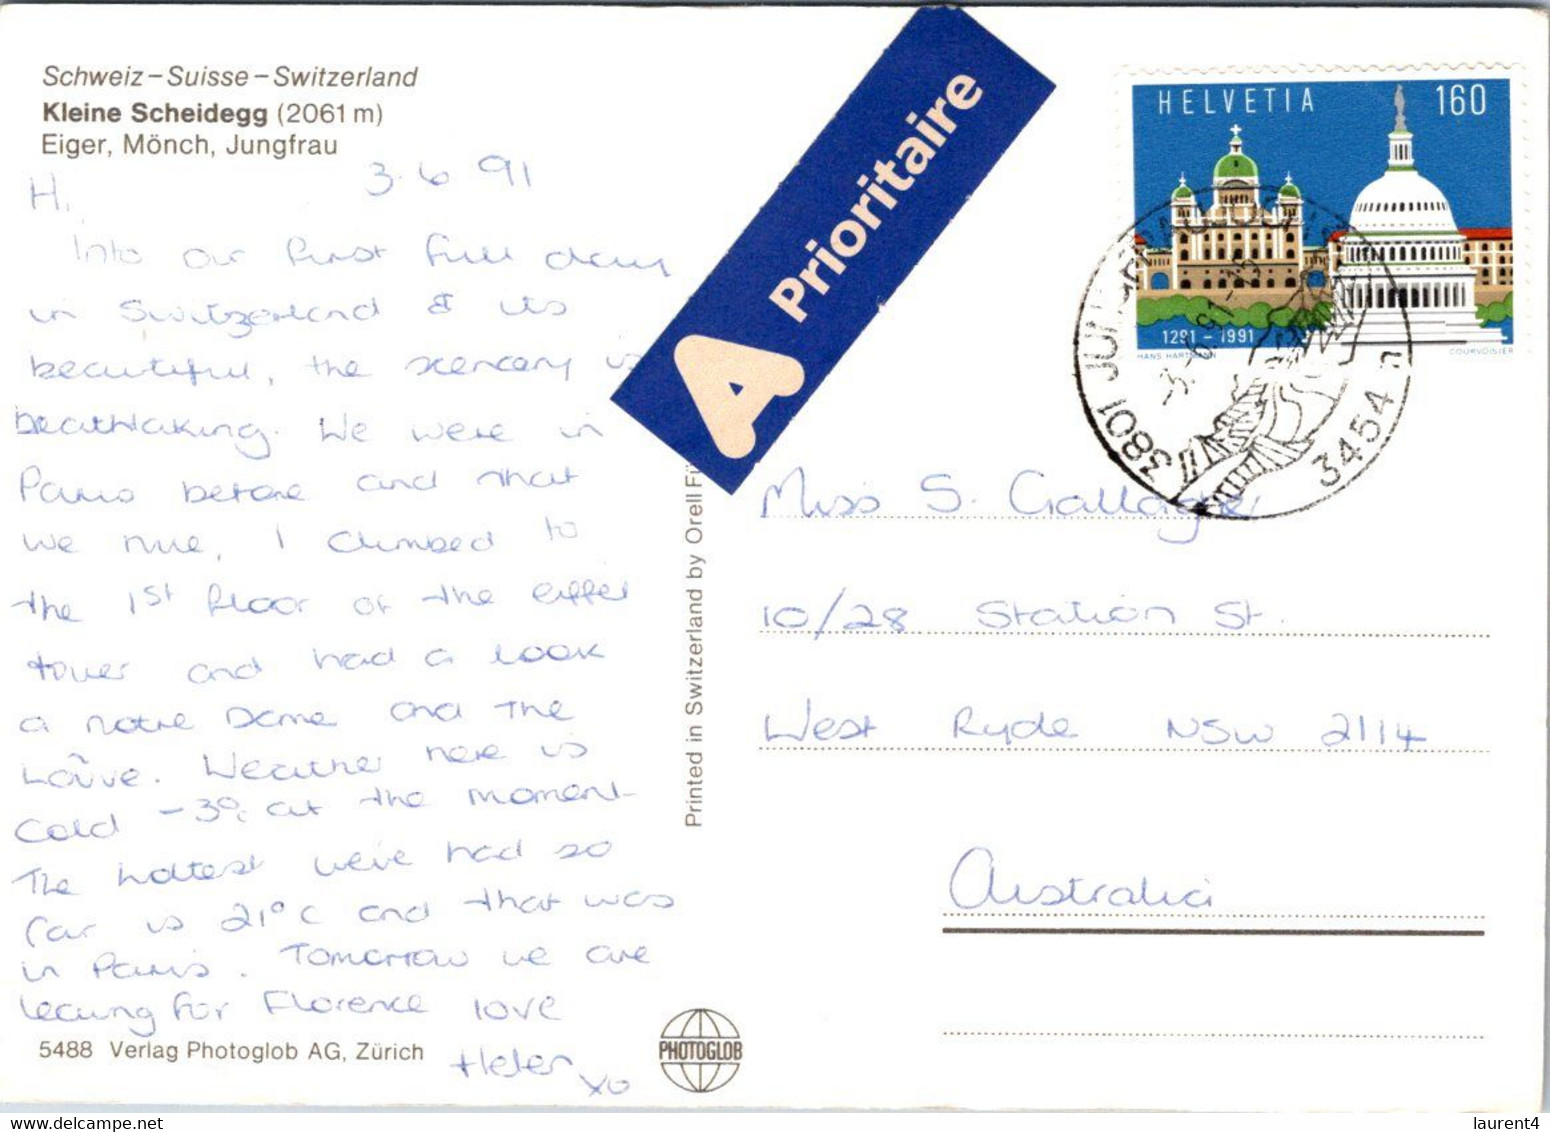 Schweiz – Suisse – Switzerland
Kleine Scheidegg (2061 m)
Eiger, Mönch, Jungfrau
3.6 91
Hi,
Into our first full day
in Switzerland & its
beautiful, the scenery is
breathtaking. We were in
Paris before and that
was nice, I climbed to
the 1st floor of the eiffel
tower and had a look
a notre Dame and the
Loûve. Weather here is
Cold -3°c at the moment
The hottest we've had so
far is 21°c and that was
in Paris. Tomorrow we are
leaving for Florence love
Helen xo
5488 Verlag Photoglob AG, Zürich
PHOTOGLOB
Printed in Switzerland by Orell Fü
A Prioritaire
HELVETIA 160
1291 – 1991
HANS HARTMANN COURVOISIER
3801 3454 m
-3.-6.91-15
Miss S. Gallagher
10/28 Station St.
West Ryde NSW 2114
Australia
laurent4